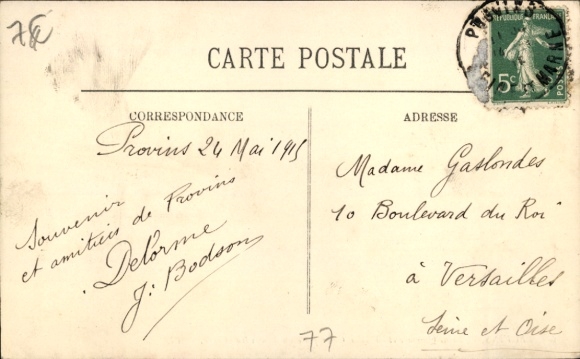 7€
CARTE POSTALE
PROVINS
MARNE
RÉPUBLIQUE FRANÇAISE
5c
POSTES
CORRESPONDANCE
Provins 24 Mai 1915
Souvenir
et amitiés de Provins
Delorme
J. Bodson
ADRESSE
Madame Gaslondes
10 Boulevard du Roi
à Versailles
Seine et Oise
77